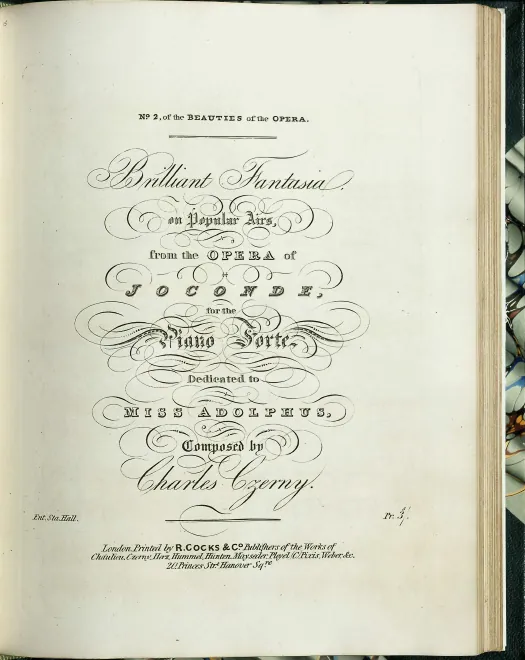 No 2, of the BEAUTIES of the OPERA.
Brilliant Fantasia.
on Popular Airs,
from the OPERA of
JOCONDE,
for the
Piano Forte,
Dedicated to
MISS ADOLPHUS,
Composed by
Charles Czerny.
Ent. Sta. Hall.
Pr.
London, Printed by R. COCKS & Co. Publishers of the Works of
Chaulieu, Czerny, Herz, Hummel, Hunten, Mayseder, Pleyel (C) Pixis, Weber, &c.
20, Princes Strt Hanover Sqre